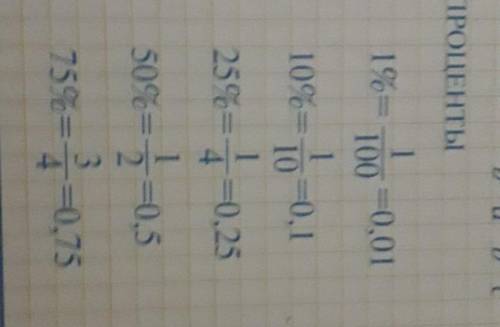 ПРОЦЕНТЫ
1%=1/100=0,01
10%=1/10=0,1
25%=1/4=0,25
50%=1/2=0,5
75%=3/4=0,75